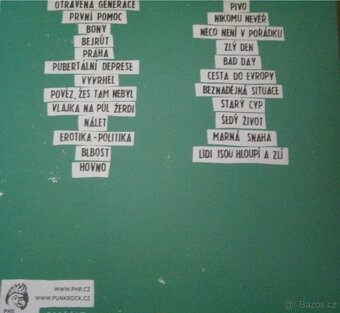 OTRÁVENÁ GENERACE
PRVNÍ POMOC
BONY
BEJRÚT
PRAHA
PUBERTÁLNÍ DEPRESE
VYVRHEL
POVĚZ, ŽES TAM NEBYL
VLAJKA NA PŮL ŽERDI
NÁLET
EROTIKA-POLITIKA
BLBOST
HOVNO
PIVO
NIKOMU NEVĚŘ
NĚCO NENÍ V POŘÁDKU
ZLÝ DEN
BAD DAY
CESTA DO EVROPY
BEZNADĚJNÁ SITUACE
STARÝ CYP
ŠEDÝ ŽIVOT
MARNÁ SNAHA
LIDI JSOU HLOUPÍ A ZLÍ
WWW.PHR.CZ
WWW.PUNKROCK.CZ
PHR
Bazoš.cz